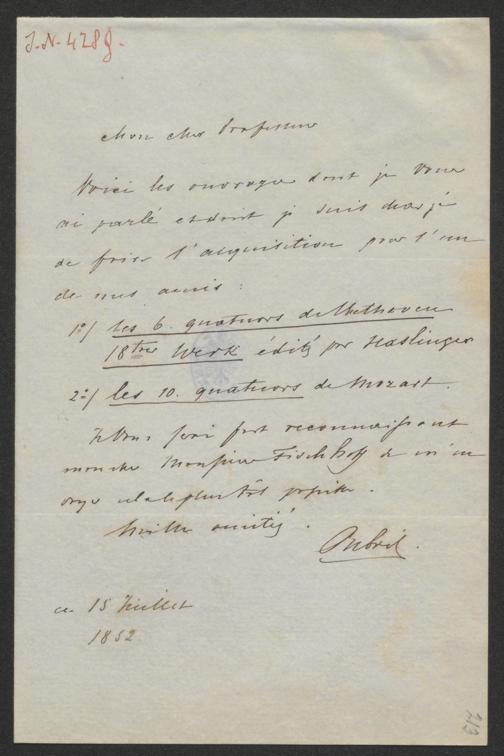 J.-N. 4289.
Mon cher Professeur
Voici les ouvrages dont je vous
ai parlé et dont je suis chargé
de faire l'acquisition pour l'un
de mes amis :
1º/ les 6. quatuors de Bethoven
18tes Werk édités par Haslinger
2º/ les 10. quatuors de Mozart.
Je Vous serai fort reconnaissant
mon cher Monsieur Fischhoff de m'en
le plus tôt possible.
Mille amitiés.
Oubril.
ce 15 Juillet
1852
213